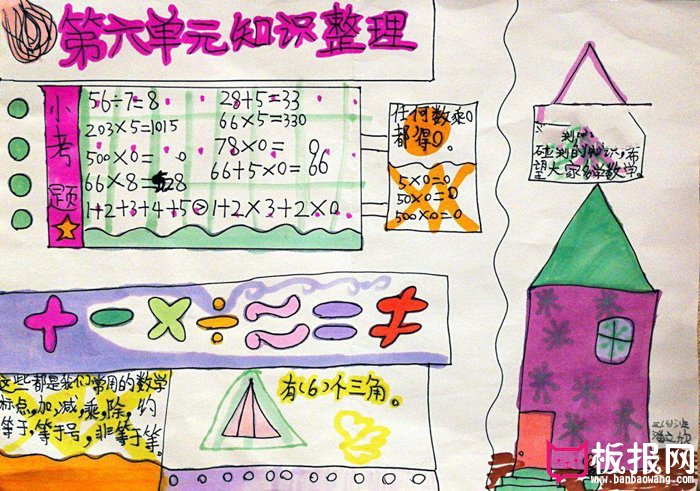 第六单元知识整理
小考题
56÷7=8 28+5=33
203×5=1015 66×5=330
500×0= 0 78×0=
66×8=528 66+5×0=66
1+2+3+4+5 1+2×3+2×0
任何数乘0
都得0。
5×0=0
50×0=0
500×0=0
知识,希
望大家多学数学。
+ - × ÷ ≈ = ≠
这些都是我们常用的数学
标点,加,减,乘,除,约
等于,等于号,非等于等。
有(6)个三角。
板报网
www.banbaowang.com